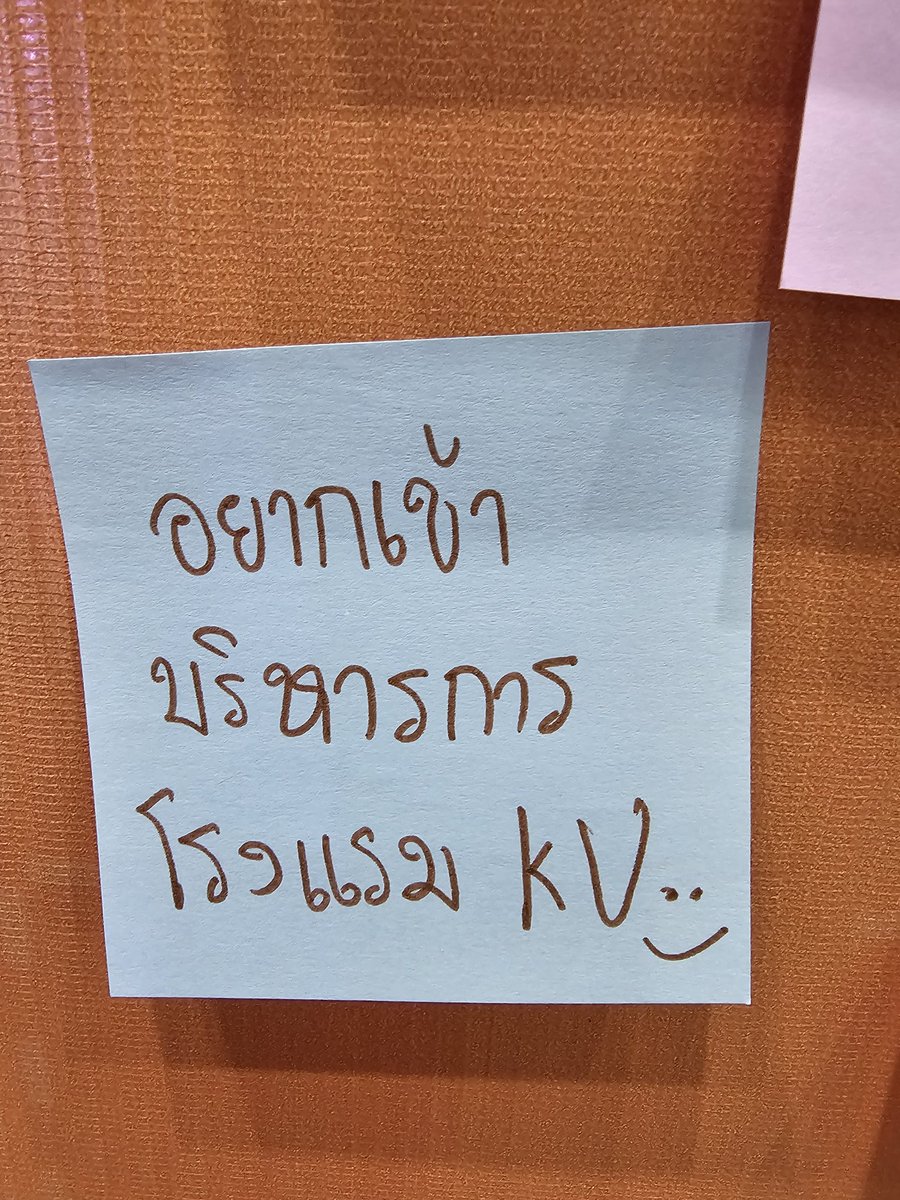 อยากเข้า
บริหารการ
โรงแรม KV